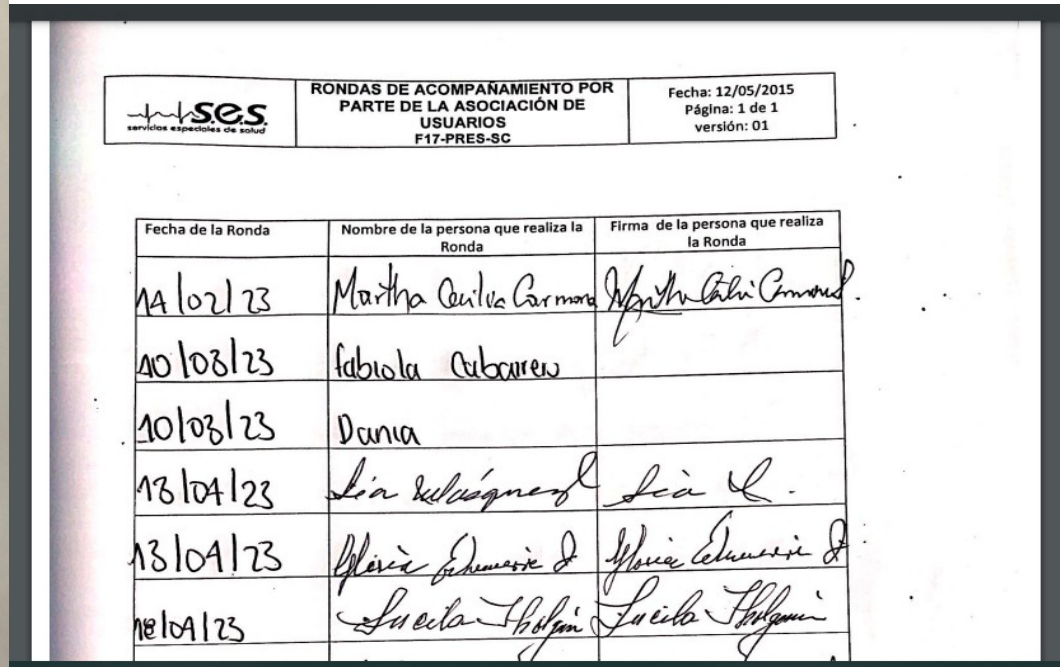 S.e.s.
servicios especiales de salud
RONDAS DE ACOMPAÑAMIENTO POR
PARTE DE LA ASOCIACIÓN DE
USUARIOS
F17-PRES-SC
Fecha: 12/05/2015
Página: 1 de 1
versión: 01
Fecha de la Ronda
Nombre de la persona que realiza la
Ronda
Firma de la persona que realiza
la Ronda
14/02/23 Martha Cecilia Carmona
10/03/23 fabiola
10/03/23 Dania
13/04/23
13/04/23 Gloria Gloria
18/04/23 Lucila Holguin Lucila Holguin